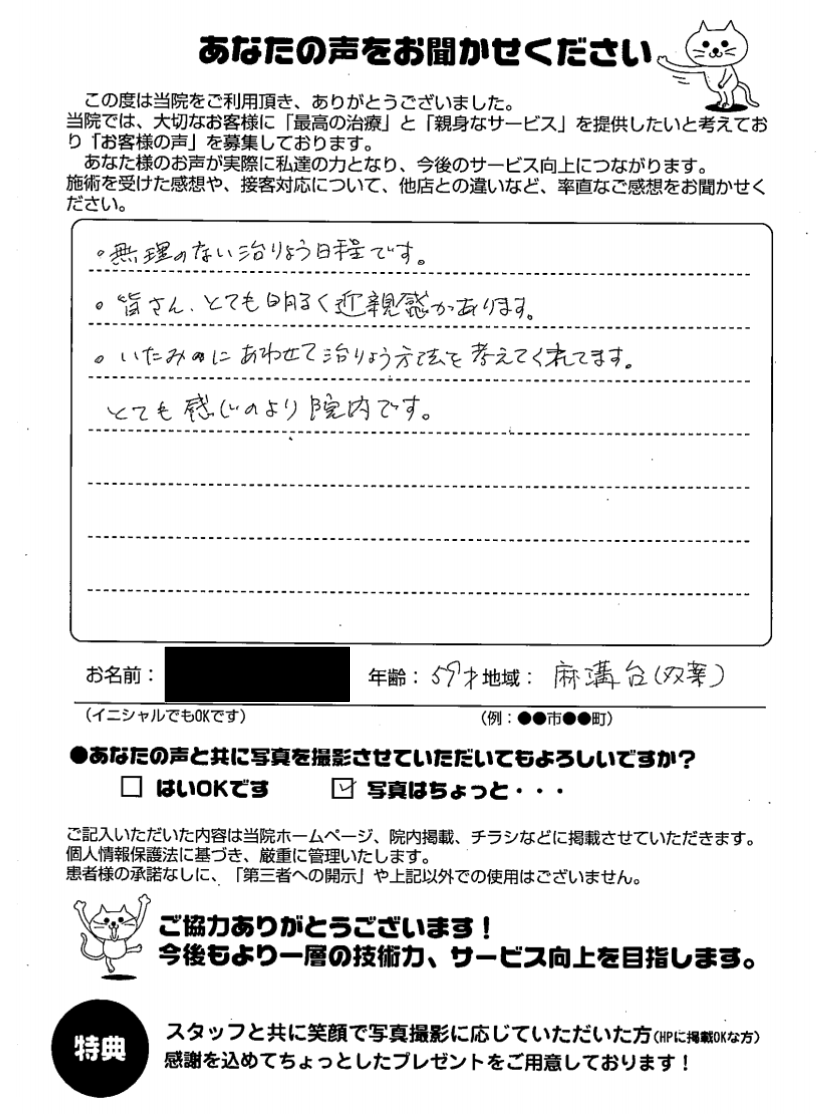 あなたの声をお聞かせください
この度は当院をご利用頂き、ありがとうございました。
当院では、大切なお客様に「最高の治療」と「親身なサービス」を提供したいと考えてお
り「お客様の声」を募集しております。
あなた様のお声が実際に私達の力となり、今後のサービス向上につながります。
施術を受けた感想や、接客対応について、他店との違いなど、率直なご感想をお聞かせく
ださい。
。無理のない治りょう日程です。
。皆さん、とても明るく近親感があります。
。いたみにあわせて治りょう方法を考えてくれてます。
とても感じのより院内です。
お名前： 年齢：59才 地域：麻溝台(双葉)
(イニシャルでもOKです) (例：●●市●●町)
●あなたの声と共に写真を撮影させていただいてもよろしいですか？
□ はいOKです ☑ 写真はちょっと・・・
ご記入いただいた内容は当院ホームページ、院内掲載、チラシなどに掲載させていただきます。
個人情報保護法に基づき、厳重に管理いたします。
患者様の承諾なしに、「第三者への開示」や上記以外での使用はございません。
ご協力ありがとうございます！
今後もより一層の技術力、サービス向上を目指します。
特典
スタッフと共に笑顔で写真撮影に応じていただいた方(HPに掲載OKな方)
感謝を込めてちょっとしたプレゼントをご用意しております！